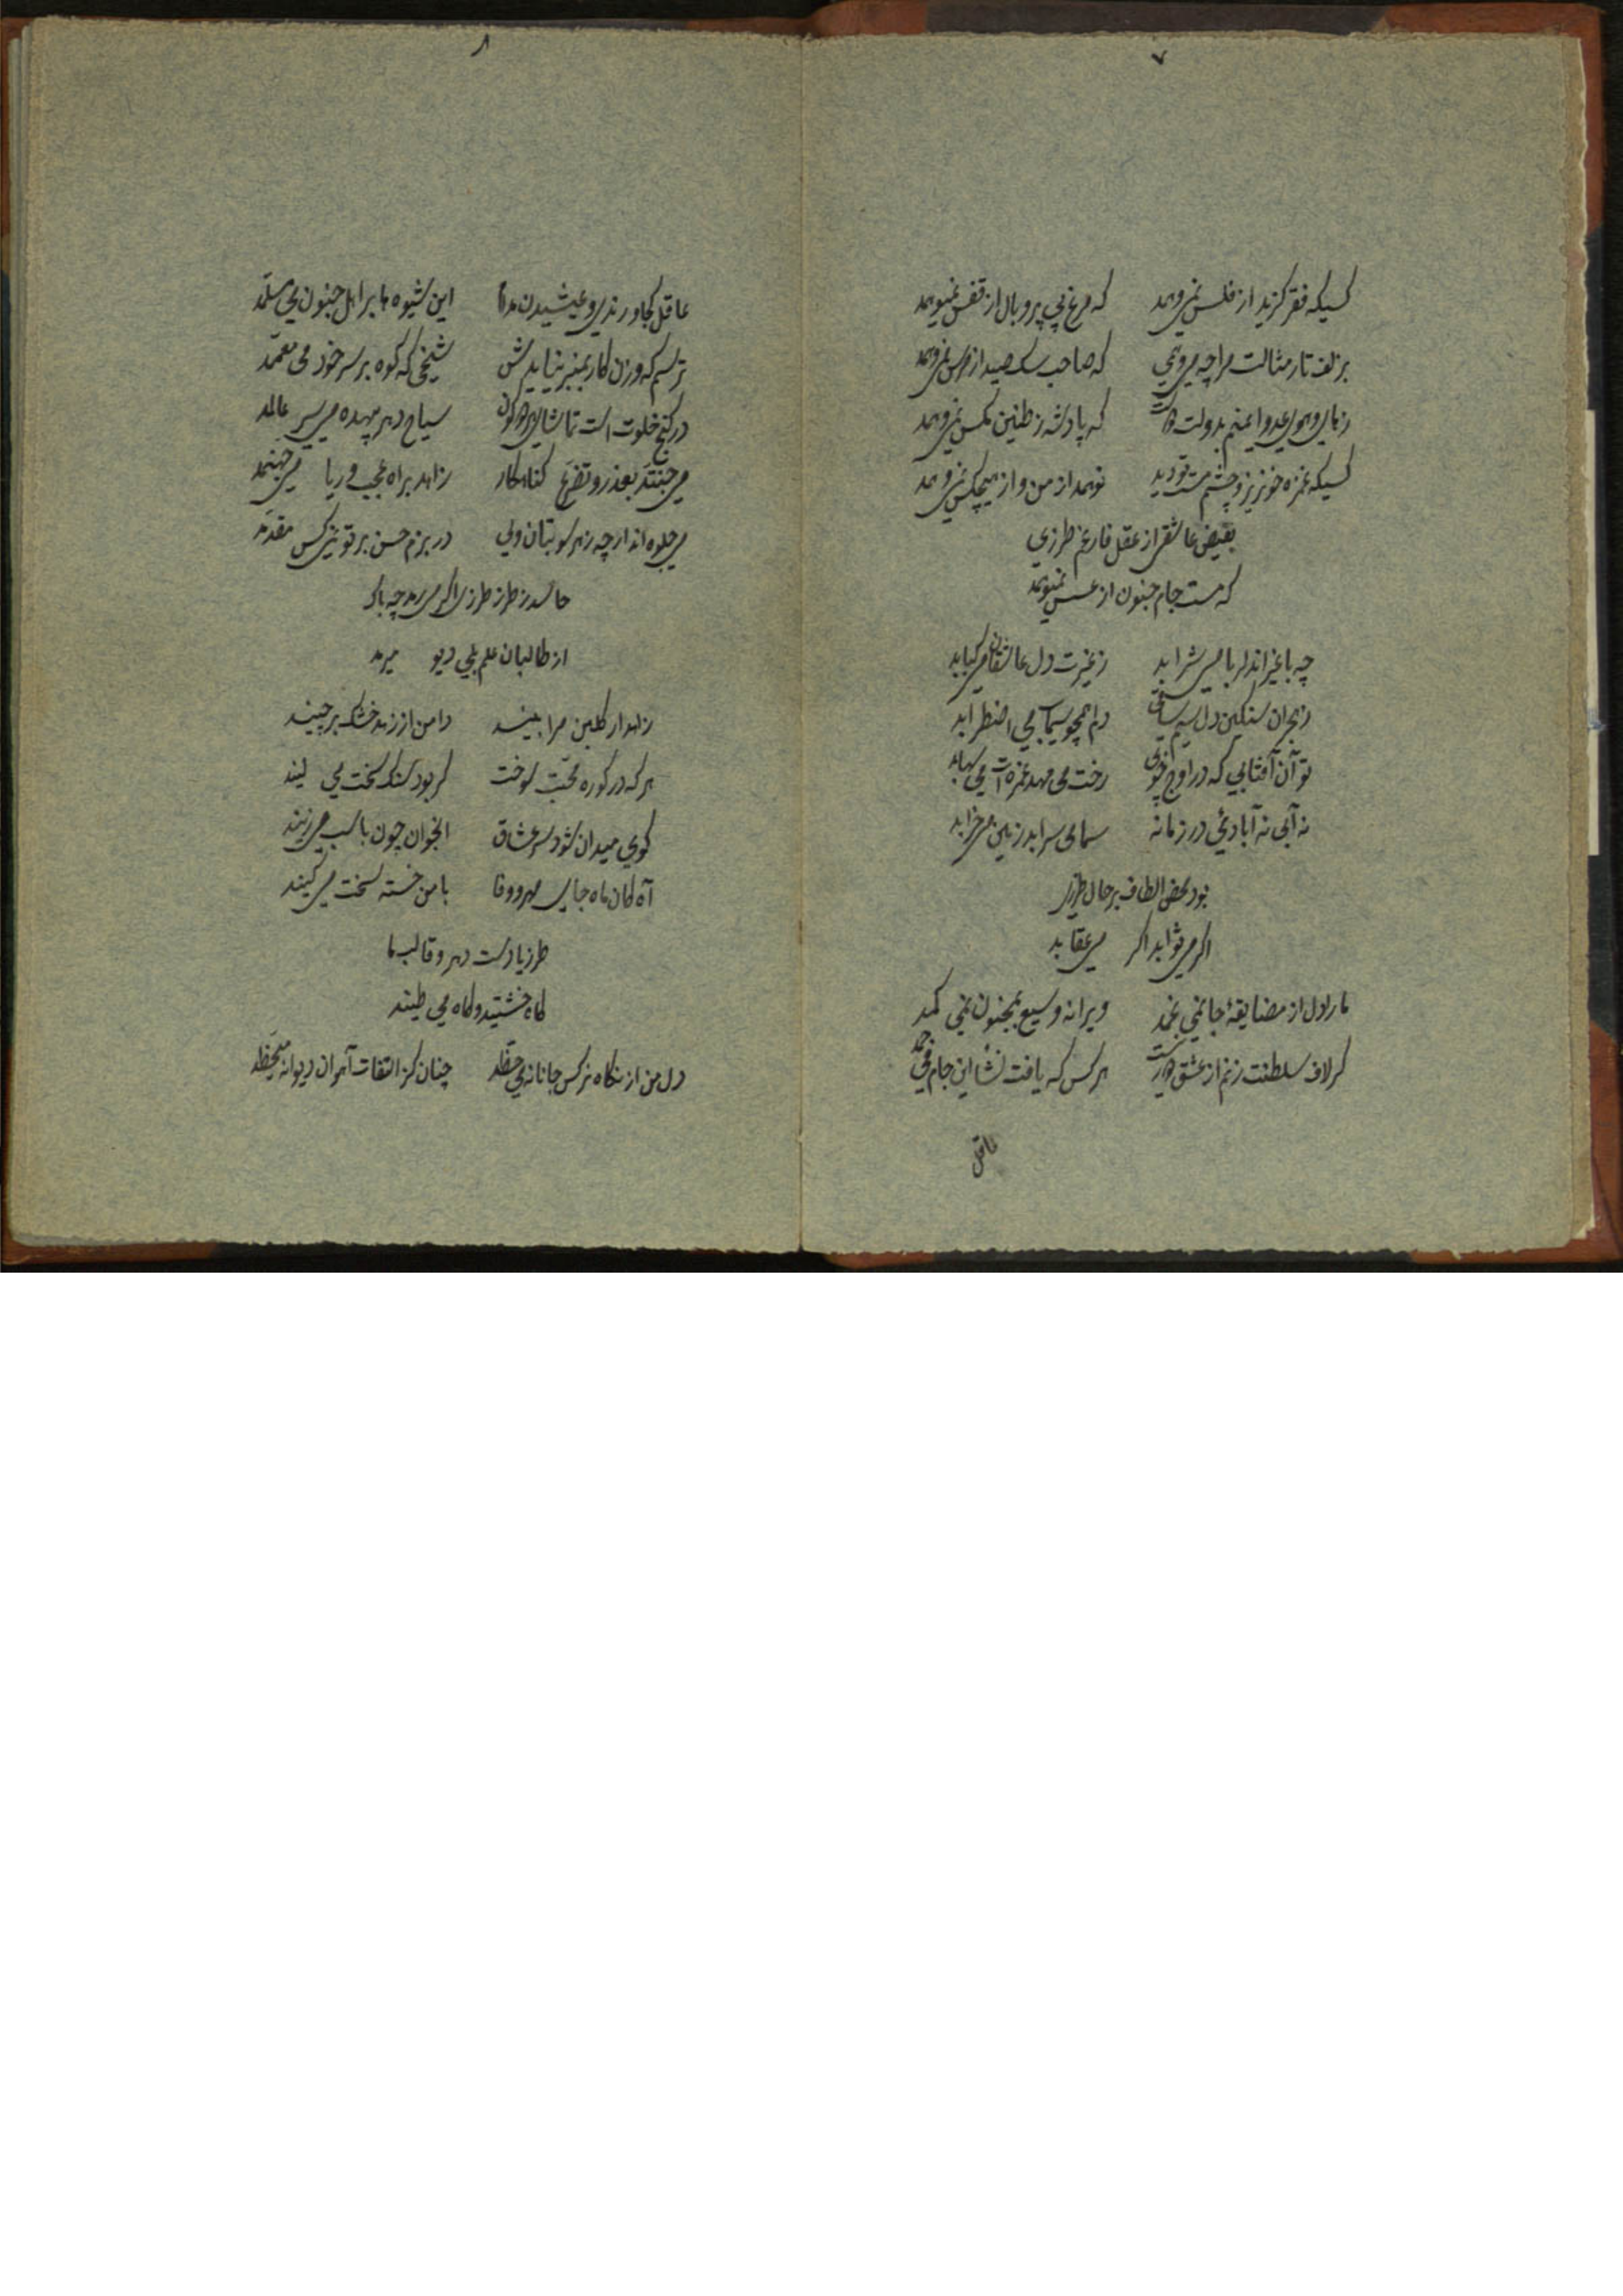 ۷
کسیکه فقر گزید از فلس نمیوهمد که مرغ بی پر و بال از قفس نمیوهمد
بزلف تار مثالت مرا چه میوهمی که صاحب سک صید از مرس نمیوهمد
زهای وهوی عدو ایمنم بدولت که پادشه ز طنین مکس نمیوهمد
کسیکه غمزه خونریز و چشم مست تو دید نوهمد از من و از هیچکس نمیوهمد
بفیض عاشقی از عقل فارغم طرزی
که مست جام جنون از عسس نمیوهمد
چه با غیر آن دلربا میشرابد ز غیرت دل عاشقان میکبابد
ز هجران سنکین دل سیم ساقی دلم همچو سیماب می اضطرابد
تو آن آفتابی که در اوج خوبی رخت می مهد غمزه ات می شهابد
نه آبی نه آبادیی در زمانه سمائی سرابد زمین میخرابد
بود محض الطاف بر حال طرزی
اکر میثوابد اکر میعقابد
ما را دل از مضایقهٔ جا نمی غمد ویرانه وسیع بمجنون نمی کمد
کر لاف سلطنت زنم از عشق دور نیست هر کس که یافت نشأ این جام می جمد
عاقل
۸
عاقل کجا و رندی و عیشیدن مدام این شیوه ها بر اهل جنون می مسلمد
ترسم که وزن کار بمنبر نیایدش شیخی که کوه بر سر خود می معممد
در کنج خلوت است تماشای سیاح دهر بیهده می سیر عالمد
می جنتد بعذر و تضرع کناهکار زاهد براه عجب و ریا می جهنمد
می جلوه اند ار چه ز هر سو بتان ولی در بزم حسن بر تو نه کس مقدمد
حاسد ز طرز طرزی اگر میرمد چه باک
از طالبان علم بلی دیو میرمد
زاهد ار کلبن مرا بیند دامن از زهد خشک برچیند
هر که در کوره محبت سوخت کر بود سنک سخت می لیند
کوی میدان شود سر عشاق آنجوان چون باسب میزیند
آه کان ماه جای مهر و وفا با من خسته سخت می کیند
طرزیا دست دهر و قالب ما
کاه خشتید و کاه می طیند
دل من از نکاه نرکس جانانه می حظد چنان کز التفات آهوان دیوانه میحظد